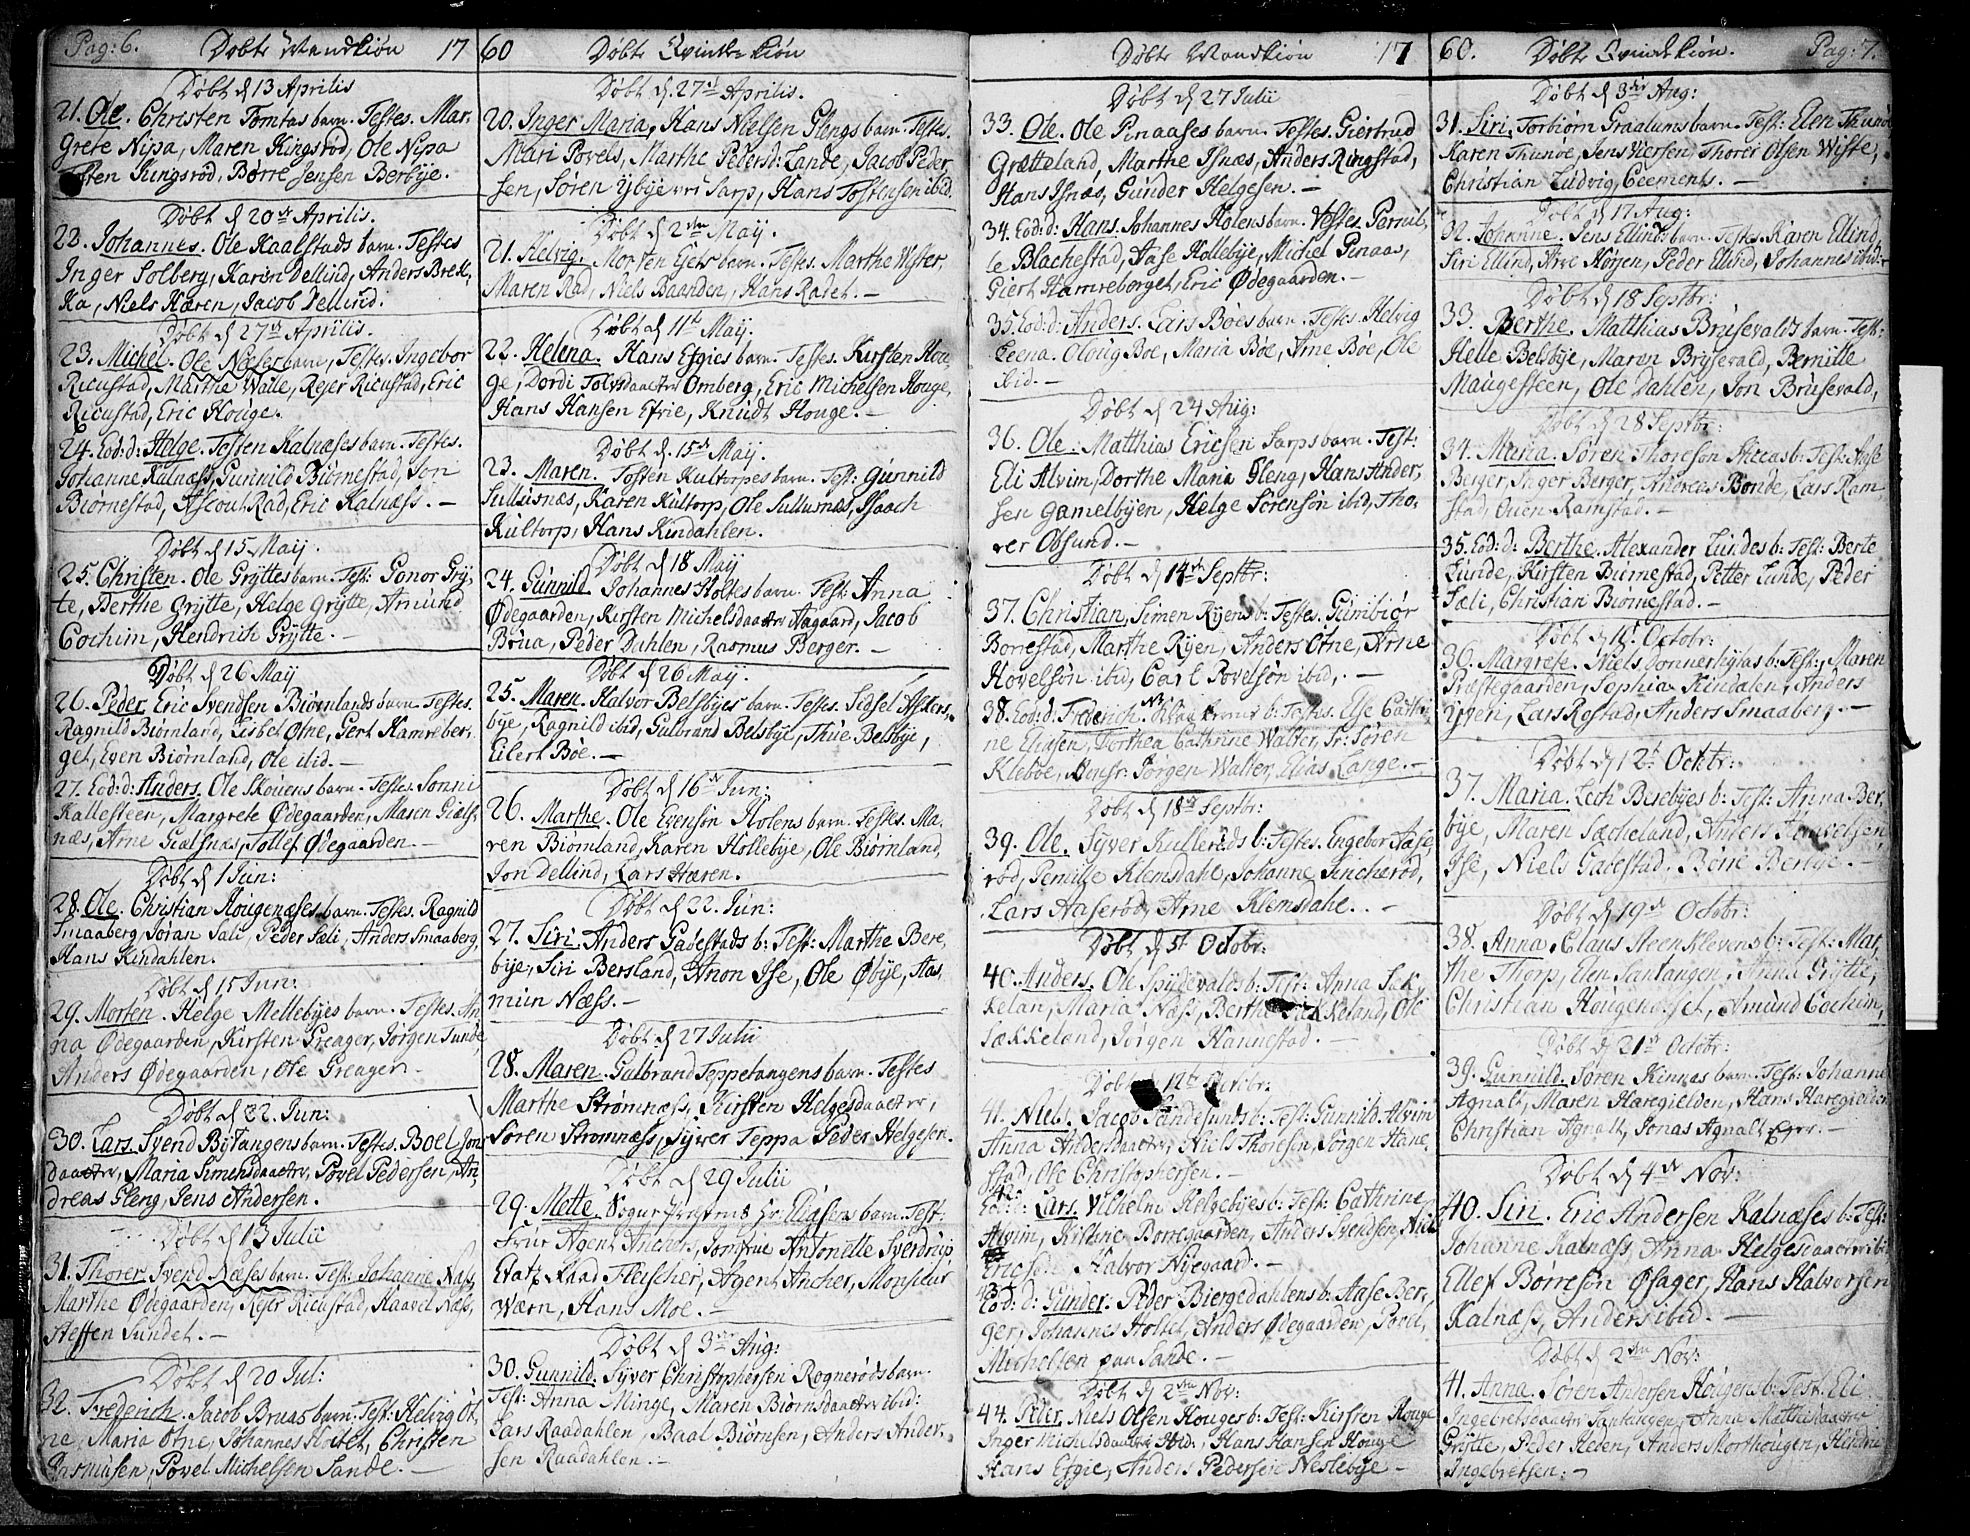 Pag: 6. Døbte Mandkiøn 17
Døbt d 13 Aprilis
21. Ole. Christen Tomtas barn. Testes. Mar,
grete Nipa, Maren Kingsrød, Ole Nipa
Torsten Kungsrød, Børre Jensen Berbye.
Døbt d 20de Aprilis.
22. Johannes. Ole Kaalstads barn. Testes
Inger Solberg, Karen Dellind, Anders Brek,
ka, Niels Hæren, Jacob Dellind.
Døbt d 27de Aprilis.
23. Michel. Ole Neles barn, Testes. Ingebor
Ricustad, Marthe Walle, Rejer Ricustad, Eric
Ricustad, Eric Houge.
24. Eod: d: Helge. Testen Kalnæses barn. Testes.
Johanne Kalnæss, Gunnild Biørnestad, Jon
Biørnestad, Ascout Rad, Eric Kalnæss. -
Døbt d 15 Maij.
25. Christen. Ole Gryttes barn. Test: Gonor Gry,
te, Berthe Grytte, Helge Grytte, Amund
Cochim, Hendrich Grytte. -
Døbt d 26 Maij
26. Peder. Eric Svendsen Biørnlands barn. Testes.
Ragnild Biørnland, Lisbet Otne, Gert Hamrebor,
get, Even Biørnland, Ole ibid. -
27. Eod: d: Anders. Ole Skouens barn. Testes. Sonni
Kallesteen, Margrete Ødegaarden, Maren Giæls,
næs, Arne Giælsnæs, Tollef Ødegaarden. -
Døbt d 1 Jun:
28. Ole. Christian Hougenæses barn. Testes. Ragnild
Smaaberg, Søran Sali, Peder Sæli, Anders Smaaberg,
Hans Kindahlen.
Døbt d 15 Jun:
29. Morten. Helge Mellebyes barn. Testes. An
na Ødegaarden, Kirsten Greager, Jørgen Tunde,
Anders Ødegaarden, Ole Greager. -
Døbt d 22. Jun:
30. Lars. Svend Bytangens barn. Testes. Boel Jons
daatter, Maria Simensdaatter, Povel Pedersen, An,
dreas Gleng, Jens Andersen.
Døbt d 13 Julii
31. Thorer. Svend Næses barn. Test: Johanne Næss,
Marthe Ødegaarden, Rejer Ricustad, Haavel Næss,
Steffen Sundet. -
Døbt d 20 Jul:
32. Frederich. Jacob Bruas barn. Test: Helvig Ot,
ne, Maria Otne, Johannes Holtet, Christen
Rasmusen, Povel Michelsen Sande. -
60 Døbte Qvinde kiøn
Døbt d. 27de Aprilis.
20. Inger Maria, Hans Nielsen Glengs barn. Testes.
Mari Povels, Marthe Pedersd: Lande, Jacob Peder
sen, Søren Ybye ved Sarp, Hans Tostensen ibid.
Døbt d 2den Maij.
21. Helvig. Morten Ejers barn. Testes. Marthe Wister,
Maren Rad, Niels Baanden, Hans Radet. -
Døbt d 11te Maij.
22. Helena. Hans Efgies barn. Testes. Kirsten Hou,
ge, Dordi Tolvsdaatter Omberg, Eric Michelsen Houge,
Hans Hansen Efvie, Knudt Houge. -
Døbt d. 15de Maij.
23. Maren. Tosten Kultorpes barn. Test: Gunnild
Sullusnæs, Karen Kultorp, Ole Sullusnæs, Isaach
Kultorp, Hans Kindahlen.
Døbt d 18 Maij
24. Gunnild. Johannes Holtes barn. Test: Anna
Ødegaarden, Kirsten Michelsdaatter Aagaard, Jacob
Brua, Peder Dahlen, Rasmus Berger. -
Døbt d 26 Maij.
25. Maren. Halvor Belsbyes barn. Testes. Sidsel Askers,
bye, Ragnild ibid, Gulbrand Belsbye, Thue Belsbye,
Eilert Boe. -
Døbt d 16de Jun:
26. Marthe. Ole Evensøn Holens barn. Testes. Ma,
ren Biørnland, Karen Hollebye, Ole Biørnland,
Jon Dellind, Lars Hæren.
Døbt d 22. Jun:
27. Siri. Anders Gadestads b: Test: Marthe Bere,
bye, Siri Bersland, Anon Ise, Ole Øbye, Aas
mun Næss. -
Døbt d 27 Julii
28. Maren. Gulbrand Teppetangens barn. Testes
Marthe Strømnæss, Kirsten Helgesdaatter,
Søren Strømnæss, Syver Teppa Peder Helgesen.
Døbt d 29 Julii
29. Mette. Hr. Eliasens barn. Test:
Frue Agent Anchers, Jomfrue Antonette Sverdrup
Etatz Raad Fleischer, Agent Ancher, Monsieur
Wærn, Hans Moe. -
Døbt d 3die Aug:
30. Gunnild. Syver Christophersen Rognerøds barn.
Test: Anna Minge, Maren Biørnsdaatter ibid:
Lars Raadahlen, Baal Biørnsen, Anders Ander,
sen Raadahlen. -
Døbte Mandkiøn 17
Døbt d 27 Julii
33. Ole. Ole Pinaases barn. Testes. Giertrud
Grætteland, Marthe Isnæs, Anders Ringstad,
Hans Isnæs, Gunder Helgesen. -
34. Eod: d: Hans. Johannes Holens barn. Testes. Pernil,
le Blachestad, Aase Hollebye, Michel Pinaas,
Giert Hamreborget, Eric Ødegaarden. -
35. Eod: d: Anders. Lars Boes barn. Testes. Helvig
Leena. Oloug Boe, Maria Bøe, Arne Bøe, Ole
ibid. -
Døbt d 24 Aug:
36. Ole. Matthias Ericsen Sarps barn. Test:
Eli Alvim, Dorthe Maria Gleng, Hans Ander,
sen Gamelbyen, Helge Sørensøn ibid, Tho,
rer Obsund. -
Døbt d 14de Septbr:
37. Christian, Simen Ryens b: Testes. Gumbiør
Borrestad, Marthe Ryen, Anders Otne, Arne
Hovelsøn ibid, Carl Povelsøn ibid, -
38. Eod: d: Frederich. b: Testes. Else Cathri,
ne Eliasen, Dorthea Cathrine Walter, Sr: Søren
Kleboe, Monsr: Jørgen Walter, Elias Lange. -
Døbt d 18de Septbr:
39. Ole. Syver Kullerøds b: Testes. Ingebor Aase,
rød, Pernille Klemsdahl, Johanne Sincherød,
Lars Aaserød, Arne Klemsdahl. -
Døbt d 5t Octobr:
40. Anders. Ole Spydevolds b: Test: Anna Sæk,
kelan, Maria Næss, Berthe Sækkeland, Ole
Sækkeland, Jørgen Hannestad. -
Døbt d 12te Octobr:
41. Niels. Jacob Sandesunds b: Test: Gunnild Alvim
Anna Andersdaatter, Niels Thoresen, Jørgen Hane,
stad, Ole Christophersen. -
42. Eod: d: Lars. Vilhelm Helgebyes b: Test: Cathrine
Alvim, Kistine Borregaarden, Anders Svendsen, Niels
Ericsen, Halvor Nyegaard. -
43. Eod: d: Gunder. Peder Biergedahlens b: Aase Ber,
ger, Johannes Holtet, Anders Ødegaarden, Povel,
Michelsen paa Sande. -
Døbt d 2den Nov:
44. Peder. Niels Olsen Houges b: Test: Kirsten Houge
Inger Michelsdaatter ibid, Hans Hansen Houge
Hans Efgie, Anders Pedersen Neslebye -
60. Døbte Qvindkiøn. Pag: 7.
Døbt d 3die Aug:
31. Siri. Torbiørn Graalums barn. Test: Elen Thunøe
Karen Thunøe, Jens Viersen, Thorer Olsen Wiste,
Christian Ludvig Ceements. -
Døbt d 17 Aug:
32. Johanne. Jens Ellind: barn. Testes. Karen Ellind,
Siri Ellind, Arve Hørjen, Peder Ellind, Johannes ibid: -
Døbt d 18 Septbr:
33. Berthe. Matthias Brusevalds barn. Test:
Helle Belsbye, Maren Brysevald, Pernille
Maugesteen, Ole Dahlen, Jon Brusevald,
Døbt d 28 Septbr:
34. Maria. Søren Thoresøn b: Test: Aase
Berger, Inger Berger, Andreas Bonde, Lars Ram,
stad, Ouen Ramstad. -
35. Eod: d: Berthe. Alexander Lundes b: Test: Berte
Lunde, Kirsten Biørnestad, Petter Lunde, Peder
Sæli, Christian Biørnestad. -
Døbt d Octobr:
36. Margrete. Niels Sonnerhytas b: Test: Maren
Præstegaarden, Sophia Kindalen, Anders
Yven, Lars Rostad, Anders Smaaberg. -
Døbt d 12t Octbr:
37. Maria. Lech Berebyes b: Test: Anna Ber,
bye, Maren Sæcheland, Anders
Ise, Niels Gadestad. Børre Berbye. -
Døbt d 19de Octobr:
38. Anna. Claus Steenklevens b: Test: Mar,
the Thorp, Elen Santangen, Anna Grytte,
Christian Hougenæset, Amund Cochim,
Døbt d 21st Octobr:
39. Gunnild. Søren Kinnæs barn. Test: Johanne
Agnalt, Maren Haregielden, Hans Haregielden
Christian Agnalt, Jonas Agnalt Eger. -
Døbt d 4de Nov:
40. Siri. Eric Andersen Kalnæses b: Test:
Johanne Kalnæss, Anna Helgesdaatter ibid
Ellef Børresøn Øsager, Hans Halvorsen
Kalnæss, Anders ibid. -
Døbt d 2den Nov:
41. Anna. Søren Andersen Hougens b: Test. Eli
Ingebretsdaatter Santangen, Anna Mathisdaatter
Grytte, Peder Heden, Anders Morthougen, Hendric
Ingebretsen. -